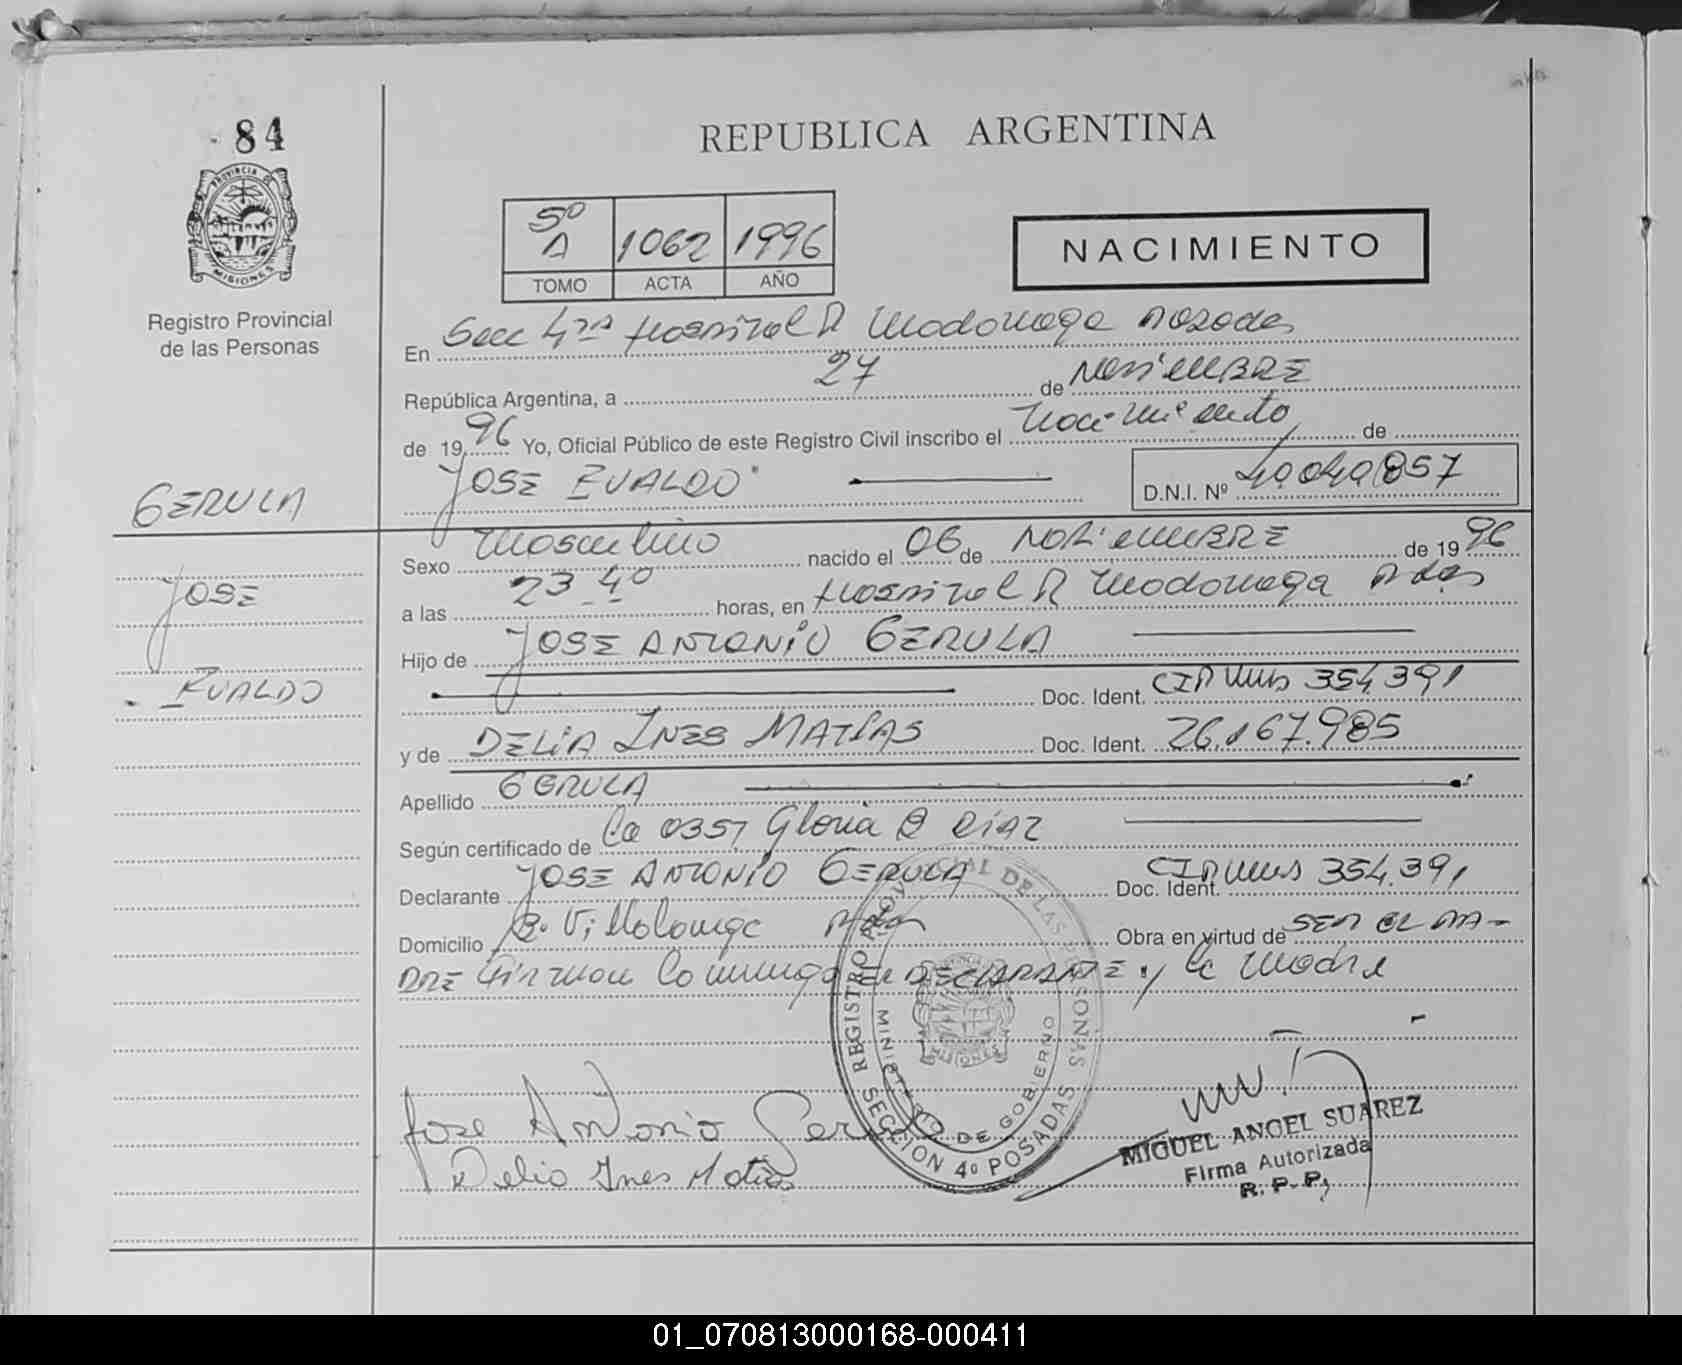 84
REPUBLICA ARGENTINA
PROVINCIA DE
MISIONES
Registro Provincial
de las Personas
5º A 1062 1996
TOMO ACTA AÑO
NACIMIENTO
En Secc 4ta Hospital R Madariaga Posadas
República Argentina, a 27 de NOViEMBRE
de 1996 Yo, Oficial Público de este Registro Civil inscribo el Nacimiento de
JOSE EVALDO D.N.I. Nº 40.040.857
GERULA
JOSE
EVALDO
Sexo Masculino nacido el 06 de NOViEMBRE de 1996
a las 23 40 horas, en Hospital R Madariaga Pdas
Hijo de JOSE ANTONiO GERULA
Doc. Ident. CIP Mnes 354.391
y de DELiA INES MATiAS Doc. Ident. 26.167.985
Apellido GERULA
Según certificado de 0357 Gloria DiAZ
Declarante JOSE ANTONiO GERULA Doc. Ident. CIP Mnes 354.391
Domicilio B. Villalonga Pdas Obra en virtud de SER EL PA-
DRE Firman Conmigo El DECLARANTE y la Madre
REGISTRO PROVINCIAL DE LAS PERSONAS
MINISTERIO DE GOBIERNO
MISIONES
SECCION 4º POSADAS
Jose Antonio Gerula
Delia Ines Matias
MIGUEL ANGEL SUAREZ
Firma Autorizada
R. P. P.
01_070813000168-000411